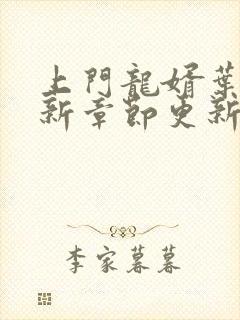 上門龍婿葉
新章節更新
李家暮暮